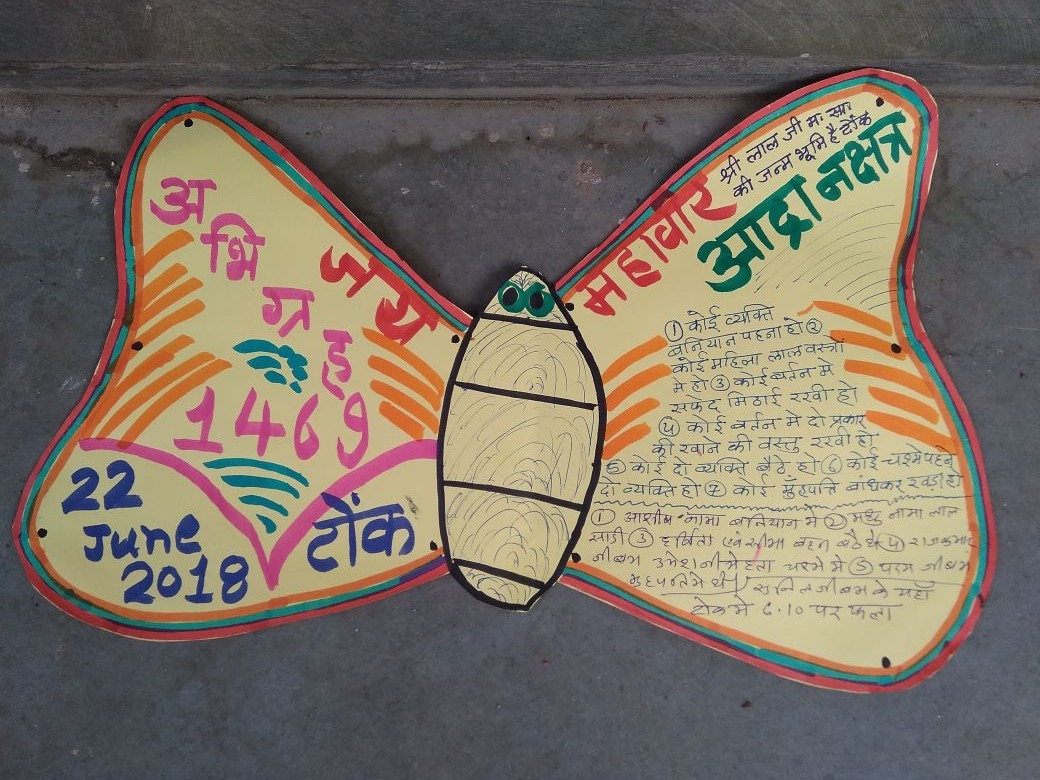 जय महावीर
अ
भि
ग्र
ह
1469
22
June
2018
टोंक
श्री लाल जी म. सा.
की जन्म भूमि है टोंक
आद्रा नक्षत्र
① कोई व्यक्ति
बनियान पहना हो ②
कोई महिला लाल वस्त्रों
मे हो ③ कोई बर्तन मे
सफेद मिठाई रखी हो
④ कोई बर्तन मे दो प्रकार
की खाने की वस्तु रखी हो
⑤ कोई दो व्यक्ति बैठे हो ⑥ कोई चश्मे पहने
दो व्यक्ति हो ⑦ कोई मुँहपत्ति बांधकर खड़ा हो
① आशीष नामा बनियान मे ② मधु नामा लाल
साडी ③ हर्षिता एवं सीमा बहन बैठे थे ④ राजकुमार
जी बम उमेश जी मेहता चश्मे मे ⑤ परम जी बम
मुहपत्ति मे थे सुनिल जी बम के यहाँ
टोंक मे 6.10 पर फला